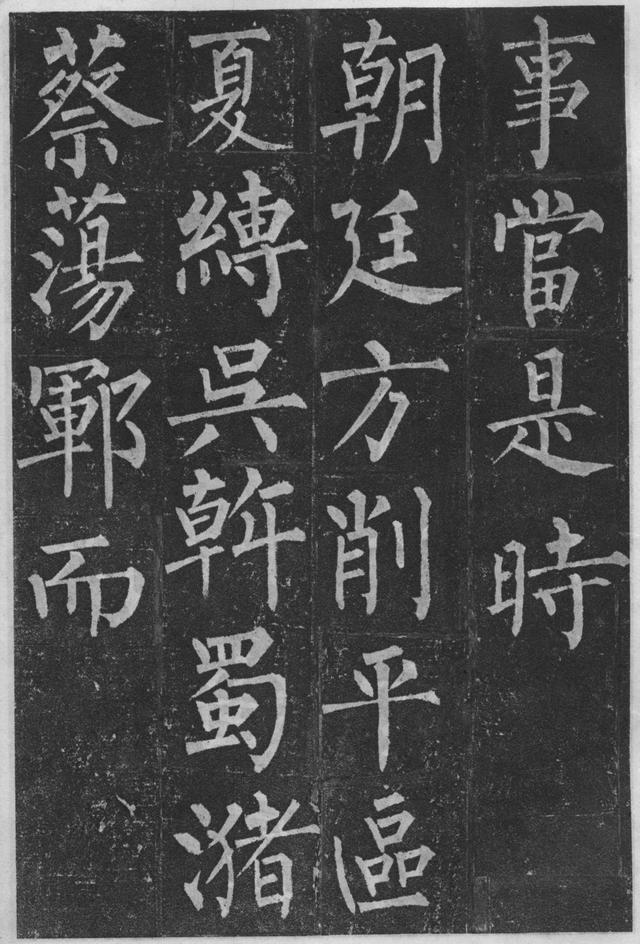 事當是時
朝廷方削平區
夏縛吳斡蜀瀦
蔡蕩鄆而